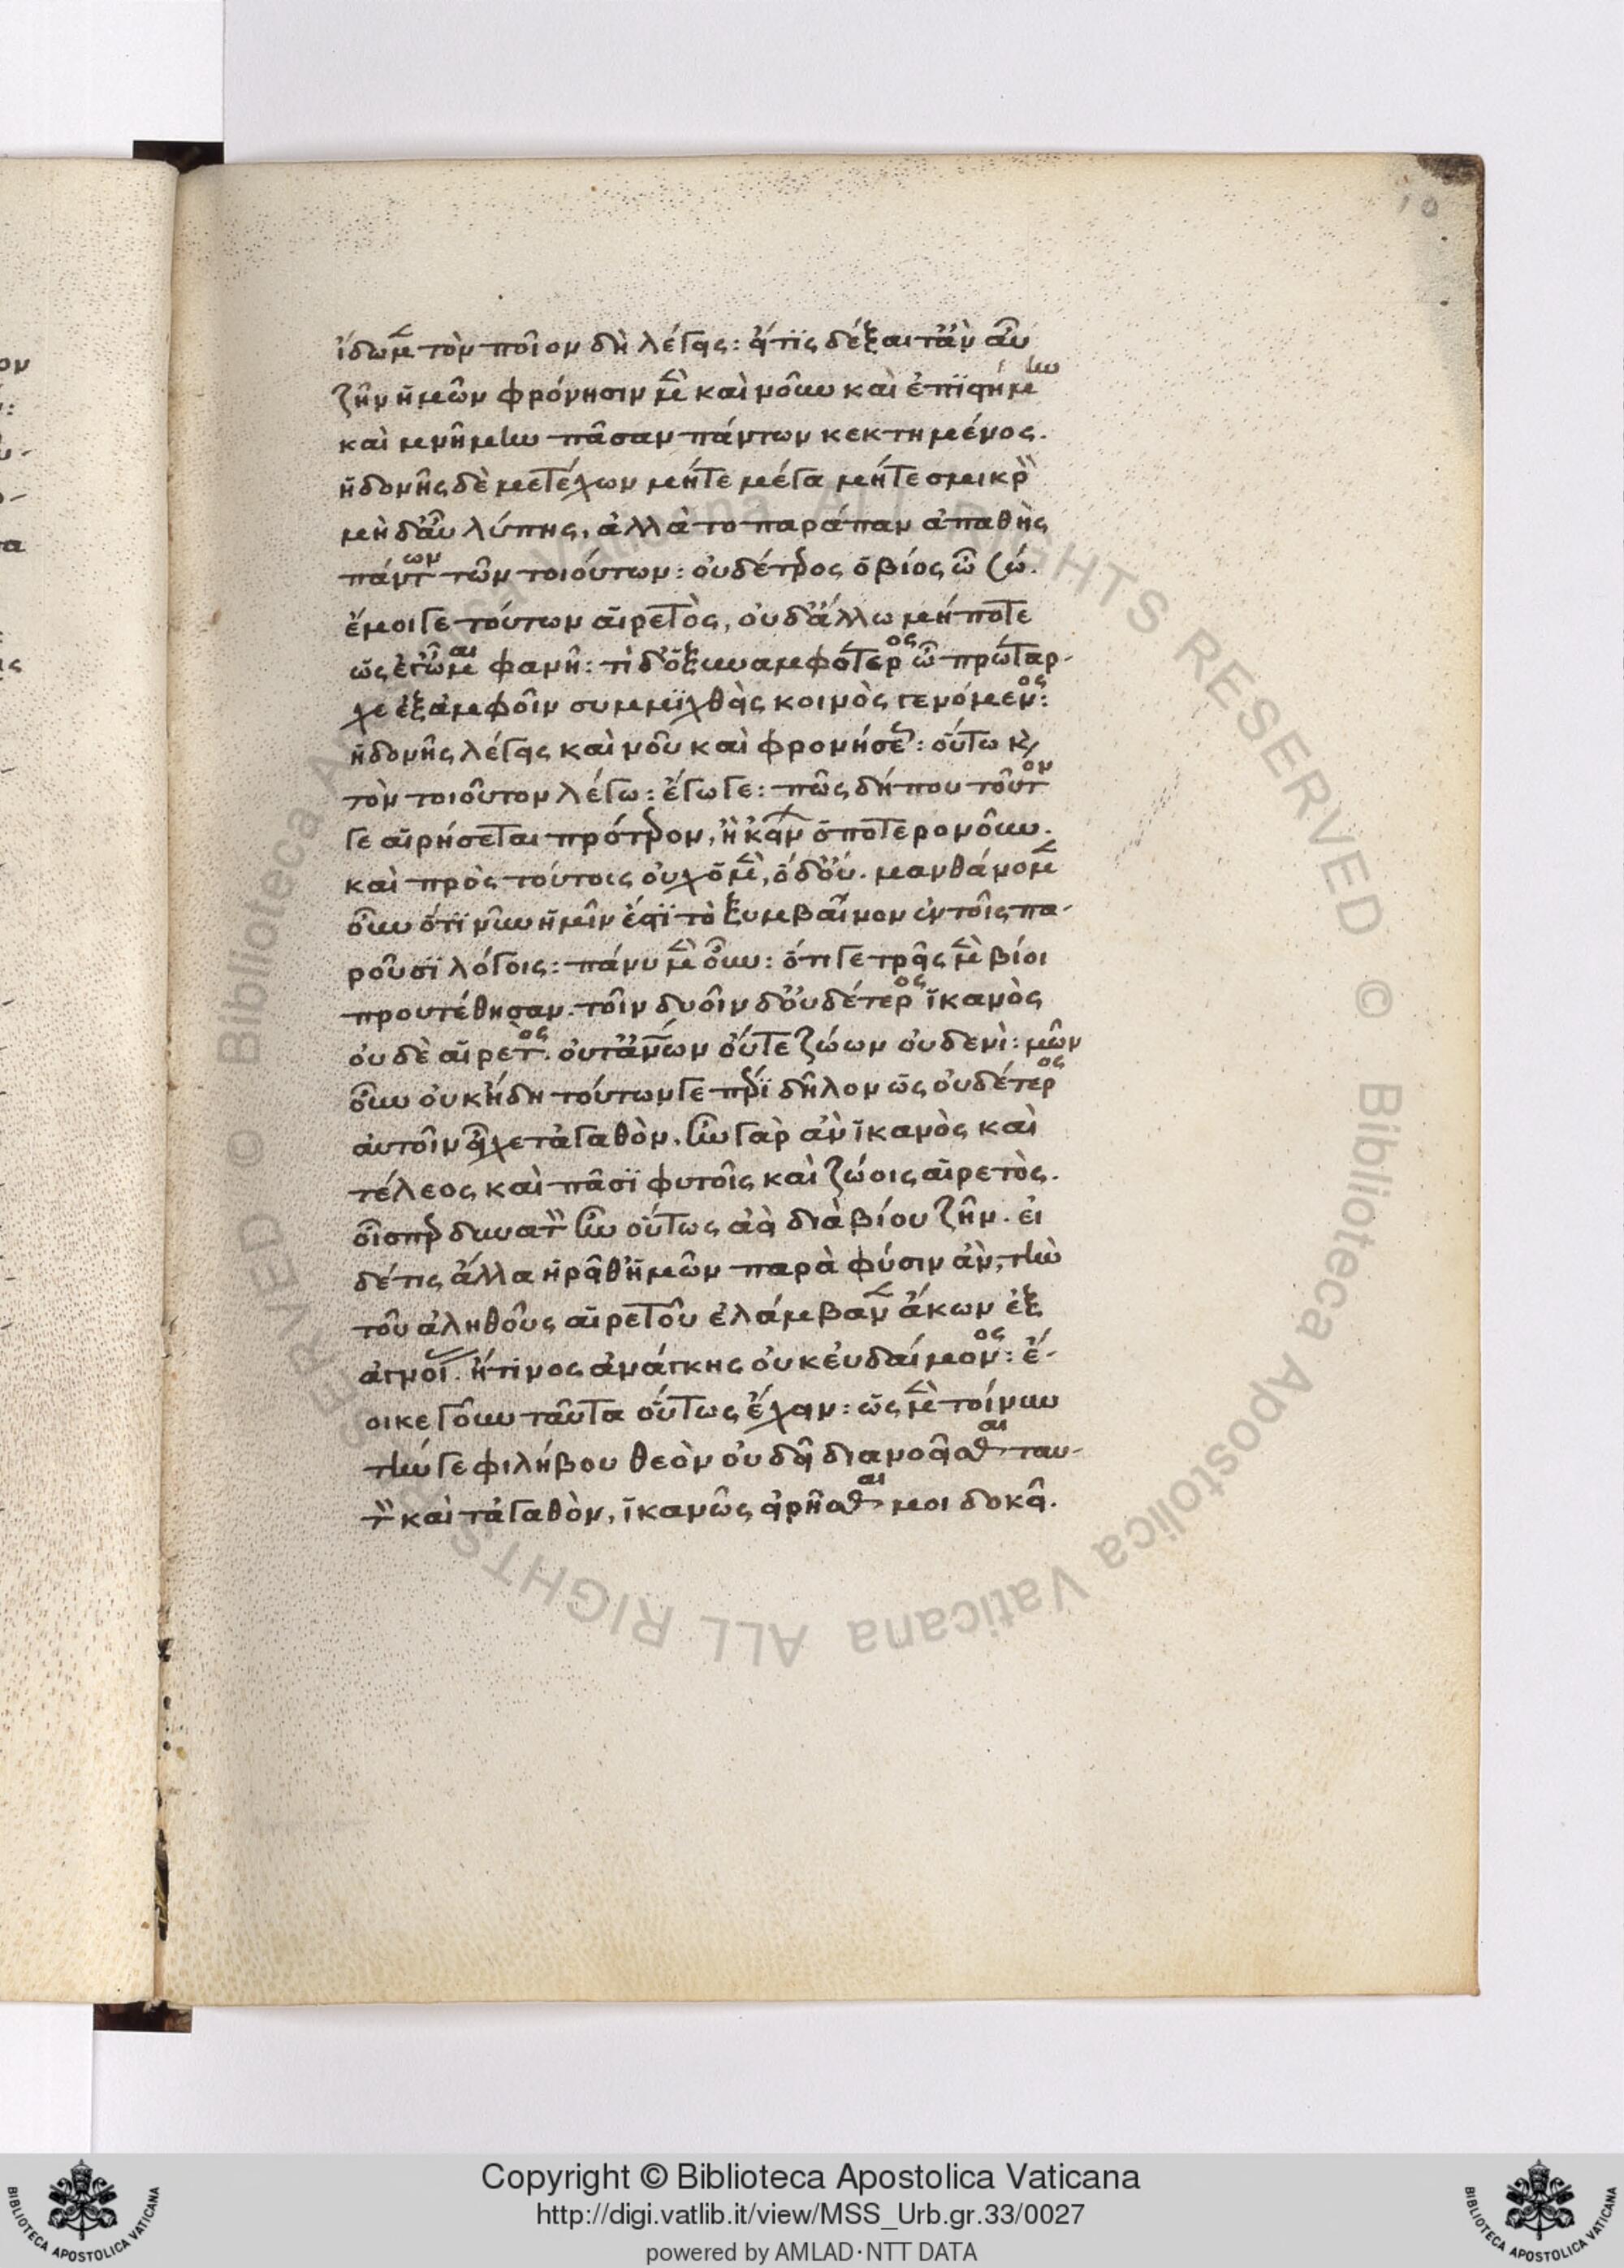 10
ἴδωμεν τὸν ποῖον δὴ λέγεις: εἴ τις δέξαιτ' ἂν αὖ
ζῆν ἡμῶν φρόνησιν μὲν καὶ νοῦν καὶ ἐπιστήμην
καὶ μνήμην πᾶσαν πάντων κεκτημένος.
ἡδονῆς δὲ μετέχων μήτε μέγα μήτε σμικρὸν
μηδ' αὖ λύπης, ἀλλὰ το παράπαν ἀπαθὴς
πάντων τῶν τοιούτων: οὐδέτερος ὁ βίος ὦ σώ.
ἔμοιγε τούτων αἱρετὸς, οὐδ' ἄλλω μήποτε
ὡς ἐγὦμαι φανῆ: τί δ' ὁ ξυναμφότερος ὦ πρώταρ-
χε ἐξ ἀμφοῖν συμμιχθεὶς κοινὸς γενόμενος:
ἡδονῆς λέγεις καὶ νοῦ καὶ φρονήσεως: οὕτω καὶ
τὸν τοιοῦτον λέγω: ἔγωγε: πᾶς δήπου τοῦτον
γε αἱρήσεται πρότερον, ἢ κείνων ὁποτερονοῦν.
καὶ πρὸς τούτοις οὐχ ὁ μὲν, ὁ δ' οὔ. μανθάνομεν
οὖν ὅτι νῦν ἡμῖν ἐστι τὸ ξυμβαῖνον ἐν τοῖς πα-
ροῦσι λόγοις: πάνυ μὲν οὖν: ὅτι γε τρεῖς μὲν βίοι
προυτέθησαν. τοῖν δυοῖν δ' οὐδέτερος ἱκανὸς
οὐδὲ αἱρετὸς. οὔτ' ἀνθρώπων οὔτε ζώων οὐδενὶ: μῶν
οὖν οὐκ ἤδη τούτων γε πέρι δῆλον ὡς οὐδέτερος
αὐτοῖν εἶχε τἀγαθὸν. ἦν γὰρ ἂν ἱκανὸς καὶ
τέλεος καὶ πᾶσι φυτοῖς καὶ ζώοις αἱρετὸς.
οἷσπερ δυνατὸν ἦν οὕτως ἀεὶ διὰ βίου ζῆν. εἰ
δέ τις ἄλλα ἡρεῖθ' ἡμῶν παρὰ φύσιν ἂν, τὴν
τοῦ ἀληθοῦς αἱρετοῦ ἐλάμβανεν ἄκων ἐξ
ἀγνοίας. ἤ τινος ἀνάγκης οὐκ εὐδαίμονος: ἔ-
οικε γοῦν ταῦτα οὕτως ἔχειν: ὡς μὲν τοίνυν
τήν γε φιλήβου θεὸν οὐ δεῖ διανοεῖσθαι ταυ-
τὸν καὶ τἀγαθὸν, ἱκανῶς εἰρῆσθαι μοι δοκεῖ.
Copyright © Biblioteca Apostolica Vaticana
http://digi.vatlib.it/view/MSS_Urb.gr.33/0027
powered by AMLAD·NTT DATA
BIBLIOTECA APOSTOLICA VATICANA
BIBLIOTECA APOSTOLICA VATICANA